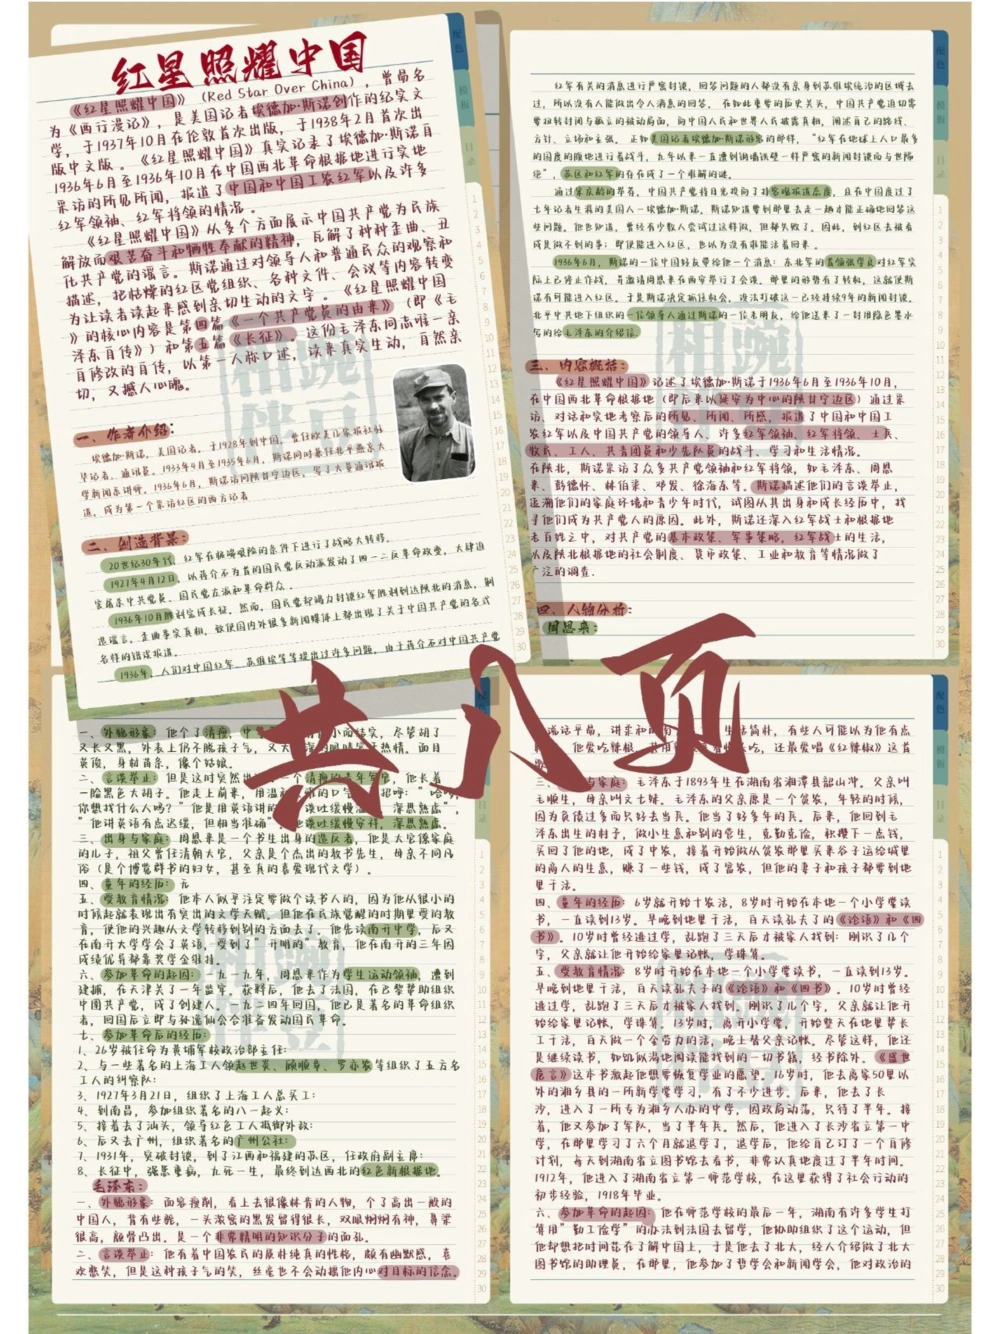 红星照耀中国
《红星照耀中国》（Red Star Over China），曾易名
为《西行漫记》，是美国记者埃德加·斯诺创作的纪实文
学，于1937年10月在伦敦首次出版，于1938年2月首次出
版中文版。《红星照耀中国》真实记录了埃德加·斯诺自
1936年6月至1936年10月在中国西北革命根据地进行实地
采访的所见所闻，报道了中国和中国工农红军以及许多
红军领袖、红军将领的情况。
《红星照耀中国》从多个方面展示中国共产党为民族
解放而艰苦奋斗和牺牲奉献的精神，瓦解了种种歪曲、丑
化共产党的谣言。斯诺通过对领导人和普通民众的观察和
描述，把枯燥的红区党组织、各种文件、会议等内容转变
为让读者读起来感到亲切生动的文字。《红星照耀中国
》的核心内容是第四篇《一个共产党员的由来》（即《毛
泽东自传》）和第五篇《长征》。这份毛泽东同志唯一亲
自修改的自传，以第一人称口述，读来真实生动，自然亲
切，又撼人心魄。
一、作者介绍：
埃德加·斯诺，美国记者，于1928年到中国，曾任欧美几家报社驻
华记者、通讯员。1933年4月至1935年6月，斯诺同时兼任北平燕京大
学新闻系讲师。1936年6月，斯诺访问陕甘宁边区，写了大量通讯报
道，成为第一个采访红区的西方记者
二、创造背景：
20世纪30年代，红军在极端艰险的条件下进行了战略大转移。
1927年4月12日，以蒋介石为首的国民党反动派发动了四一二反革命政变，大肆迫
害屠杀中共党员、国民党左派和革命群众。
1936年10月胜利完成长征。然而，国民党却竭力封锁红军胜利到达陕北的消息，制
造谣言，歪曲事实真相，致使国内外很多新闻媒体上都出现了关于中国共产党的各式
各样的错误报道。
1936年，人们对中国红军、苏维埃等等提出过许多问题。由于蒋介石对中国共产党
红军有关的消息进行严密封锁，回答问题的人都没有亲身到苏维埃统治的区域去
过，所以没有人能做出令人满意的回答。在如此重要的历史关头，中国共产党迫切需
要扭转封闭与孤立的被动局面，向中国人民和世界人民披露真相，阐述自己的路线、
方针、立场和主张。正如美国记者埃德加·斯诺形容的那样，“红军在地球上人口最多
的国度的腹地进行着战斗，九年以来一直遭到铜墙铁壁一样严密的新闻封锁而与世隔
绝”，苏区和红军的存在成了一个难解的谜。
通过宋庆龄的帮布，中国共产党将目光投向了持客观报道态度，且在中国度过了
七年记者生涯的美国人—埃德加·斯诺。斯诺知道要到那里去走一趟才能正确地回答这
些问题。他也知道，曾经有少数人尝试过这样做，但都失败了。因此，到红区去被看
成是做不到的事：即使能进入红区，也认为没有谁能活着回来。
1936年6月，斯诺的一位中国好友带给他一个消息：东北军的首领张学良对红军实
际上已停止作战，并邀请周恩来在西安举行了会谈。那里的形势有了转机，这就使斯
诺有可能进入红区。于是斯诺决定抓住机会，设法打破这一已经持续9年的新闻封锁。
北平中共地下组织的一位领导人通过斯诺的一位老朋友，给他送来了一封用隐色墨水
写的给毛泽东的介绍信。
三、内容概括：
《红星照耀中国》记述了埃德加·斯诺于1936年6月至1936年10月，
在中国西北革命根据地（即后来以延安为中心的陕甘宁边区）通过采
访、对话和实地考察后的所见、所闻、所感，报道了中国和中国工
农红军以及中国共产党的领导人、许多红军领袖、红军将领、士兵、
农民、工人、共青团员和少先队员的战斗、学习和生活情况。
在陕北，斯诺采访了众多共产党领袖和红军将领，如毛泽东、周恩
来、彭德怀、林伯渠、邓发、徐海东等。斯诺描述他们的言谈举止，
追溯他们的家庭环境和青少年时代，试图从其出身和成长经历中，找
寻他们成为共产党人的原因。此外，斯诺还深入红军战士和根据地
老百姓之中，对共产党的基本政策、军事策略，红军战士的生活，
以及陕北根据地的社会制度、货币政策、工业和教育等情况做了
广泛的调查.
四、人物分析：
周恩来：
共八页
一、外貌形象：他个子清瘦，
又长又黑，外表上仍不脱孩子气，
英俊，身材苗条，像个姑娘。
三、出身与家庭：周恩来是一个书生出身的造反者，他是大官僚家庭
的儿子，祖父曾任清朝大官，父亲是个杰出的教书先生，母亲不同凡
俗（是个博览群书的妇女，甚至真的喜爱现代文学）。
四、童年的经历：无
五、受教育情况：他本人似乎注定要做个读书人的，因为他从很小的
时候起就表现出有突出的文学天赋，但他在民族觉醒的时期里受的教
育，使他的兴趣从文学转移到别的方面去了。他先读南开中学，后又
在南开大学学会了英语，受到了“开明的”教育，他在南开的三年因
成绩优异都靠奖学金维持。
六、参加革命的起因：一九一九年，周恩来作为学生运动领袖，遭到
逮捕，在天津关了一年监牢，获释后，他去了法国，在巴黎帮助组织
中国共产党，成了创建人。一九二四年回国，他已是著名的革命组织
者，回国后立即与孙逸仙会合准备发动国民革命。
七、参加革命后的经历：
1、26岁被任命为黄埔军校政治部主任：
2、与一些著名的上海工人领赵世炎、顾顺章、罗亦农等组织了五万名
工人的纠察队：
3、1927年3月21日，组织了上海工人总买工：
4、到南昌，参加组织著名的八一起义：
5、接着去了汕头，领导红色工人抵御外敌：
6、后又去广州，组织著名的广州公社：
7、1931年，突破封锁，到了江西和福建的苏区，任政府副主席：
8、长征中，强忍重病，九死一生，最终到达西北的红色新根据地。
毛泽东：
一、外貌形象：面容瘦削，看上去很像林肯的人物，个子高出一般的
中国人，背有些驼，一头浓密的黑发留得很长，双眼炯炯有神，鼻梁
很高，颧骨凸出。是一个非常精明的知识分子的面孔。
二、言谈举止：他有着中国农民的质朴纯真的性格，颇有幽默感，喜
欢憨笑，但是这种孩子气的笑，丝毫也不会动摇他内心对目标的信念。
毛泽东于1893年生在湖南省湘潭县韶山冲。父亲叫
毛顺生，母亲叫文七妹。毛泽东的父亲原是一个贫农，年轻的时候，
因为负债过多而只好去当兵。他当了好多年的兵。后来，他回到毛
泽东出生的村子，做小生意和别的营生，克勤克俭，积攒下一点钱，
买回了他的地，成了中农，接着开始做从贫农那里买来谷子运给城里
的商人的生意，赚了一些钱，成了富农，但他的妻子和孩子都要到地
里干活。
四、童年的经历：6岁就开始干农活，8岁时开始在本地一个小学堂读
书，一直读到13岁。早晚到地里干活，白天读孔夫子的《论语》和《四
书》。10岁时曾经逃过学，乱跑了三天后才被家人找到：刚识了几个
字，父亲就让他开始给家里记帐，学珠算。
五、受教育情况：8岁时开始在本地一个小学堂读书，一直读到13岁。
早晚到地里干活，白天读孔夫子的《论语》和《四书》。10岁时曾经
逃过学，乱跑了三天后才被家人找到：刚识了几个字，父亲就让他开
始给家里记帐，学珠算。13岁时，离开小学堂，开始整天在地里帮长
工干活，白天做一个全劳力的活，晚上替父亲记帐。尽管这样，他还
是继续读书，如饥似渴地阅读能找到的一切书籍，经书除外。《盛世
危言》这本书激起他想要恢复学业的愿望。16岁时，他去离家50里以
外的湘乡县的一所新学堂学习，有了不少进步。后来，他去了长
沙，进入了一所专为湘乡人办的中学，因政局动荡，只待了半年。接
着，他又参加了军队，当了半年兵。然后，他进入了长沙省立第一中
学，在那里学习了六个月就退学了，退学后，他给自己订了一个自修
计划，每天到湖南省立图书馆去看书，非常认真地度过了半年时间。
1912年，他进入了湖南省立第一师范学校，在这里获得了社会行动的
初步经验，1918年毕业。
六、参加革命的起因：他在师范学校的最后一年，湖南有许多学生打
算用“勤工俭学”的办法到法国去留学，他协助组织了这个运动，但
他却想把时间花在了解中国上，于是他去了北大，经人介绍做了北大
图书馆的助理员，在那里，他参加了哲学会和新闻学会，他对政治的